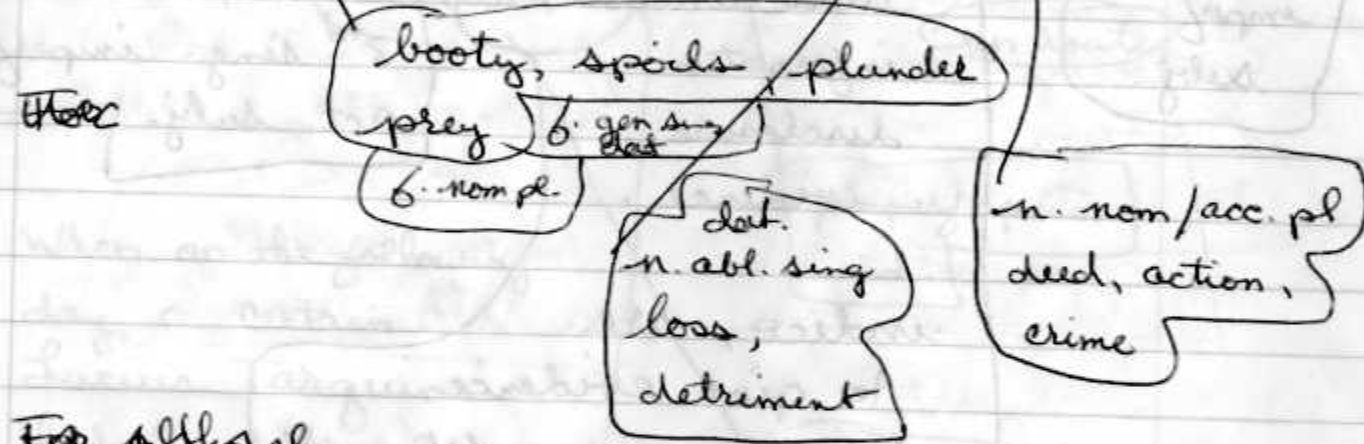 booty, spoils, plunder
prey 6. gen sing
dat
6. nom pl.
dat.
n. abl. sing
loss,
detriment
n. nom/acc. pl
deed, action,
crime
For although